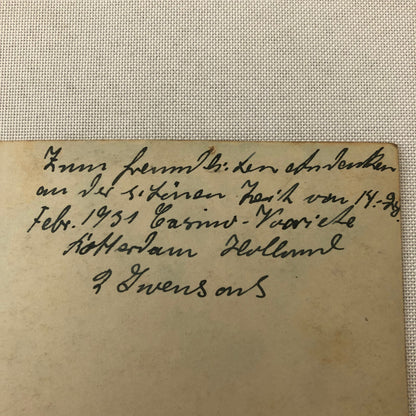 Zum freundli: en Andenken
an der s: önen Zeit von 14.-28
Febr. 1931 Casino-Variete
Rotterdam Holland
2 Iwensons